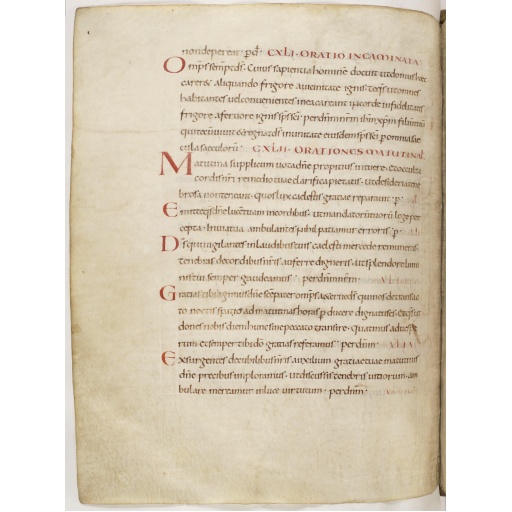 non depereat · p̄ · CXLI · ORATIO IN CAMINATA
Omp̄s semp̄ d̄s · Cuius sapientia hominē docuit ut domus haec
careret aliquando frigore a vicinitate ignis · te q̄s ut omnes
habitantes vel convenientes in ea careant in corde infidelitatis
frigore a fervore ignis sp̄s sc̄i · per dn̄m nrm ihm xp̄m filium tuum
qui tecum vivit & regnat d̄s in unitate eiusdem sp̄s sc̄i per omnia sae
cula saeculorū · CXLII · ORATIONES MATUTINAL
Matutina supplicum vota dn̄e propitius intuere · & occulta
cordis nr̄i remedio tuae clarifica pietatis · ut desideria tene
brosa non teneant · quos lux caelestis gratiae reparavit · p
Emitte q̄s dn̄e lucem tuam in cordibus · ut mandatorū tuorū lege per
cepta · in via tua ambulantes nihil patiamur erroris · p
D̄s qui vigilantes in laudibus tuis caelesti mercede remuneras ·
tenebras de cordibus nr̄is auferre digneris · ut splendore lumi
nis tui semper gaudeamus · per dn̄m nr̄m
Gratias tibi agimus dn̄e sc̄e pater omp̄s aeterne d̄s qui nos de transac
to noctis spatio ad matutinas horas p̄ducere dignatus es · q̄s ut
dones nobis diem hunc sine peccato transire · quatinus ad vesp̄e
rum et semper tibi dō gratias referamus · per dn̄m
Exsurgentes de cubilibus nr̄is auxilium gratiae tuae matutinis
dn̄e precibus imploramus · ut discussis tenebris vitiorum · am
bulare mereamur in luce virtutum · per dn̄m ·